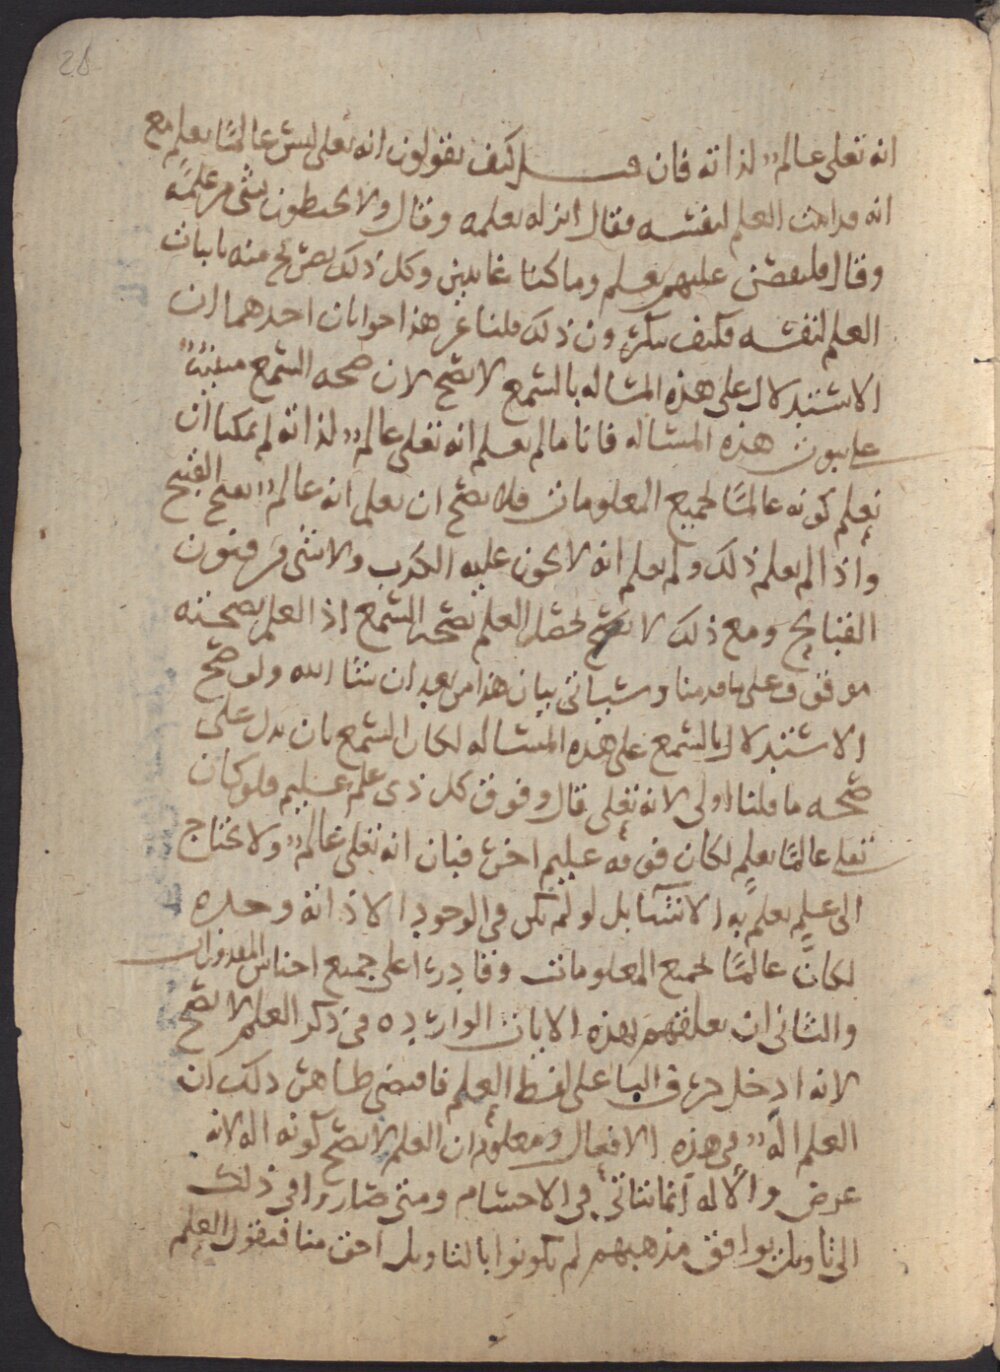 28
انه تعلى عالم لذاته فان قيل كيف تقولون انه تعلى ليس عالمًا بعلم مع
انه قد اثبت العلم لنفسه فقال انزله بعلمه وقال ولا يحيطون بشي من علمه
وقال فلنقصن عليهم بعلم وما كنا غايبين وكل ذلك تصريح منه باثبات
العلم لنفسه فكيف تنكرون ذلك قلنا عن هذا جوابان احدهما ان
الاستدلال على هذه المساله بالسمع لا يصح لان صحه السمع مبنيه
على ثبوت هذه المساله فانا ما لم نعلم انه تعلى عالم لذاته لم يمكنا ان
نعلم كونه عالمًا لجميع المعلومات فلا يصح ان نعلم انه عالم بقبح القبيح
واذا لم نعلم ذلك ولم نعلم انه لا يجوز عليه الكذب ولا شي من فنون
القبايح ومع ذلك لا يصح لنا العلم بصحه السمع اذ العلم بصحته
موقوف على ما قدمنا وسياتي بيان هذا من بعد ان شا الله ولو صح
الاستدلال بالسمع على هذه المساله لكان السمع بان يدل على
صحه ما قلنا اولى لانه تعلى قال وفوق كل ذي علم عليم فلو كان
تعلى عالمًا بعلم لكان فوقه عليم اخر فبان انه تعلى عالم ولا يحتاج
الى علم يعلم به الاشيا بل لو لم يكن في الوجود الا ذاته وحده
لكان عالمًا لجميع المعلومات وقادرا على جميع اجناس المقدورات
والثاني ان تعلقهم بهذه الايات الوارده في ذكر العلم لا يصح
لانه ادخل حرف البا على لفظ العلم فاقتضى ظاهر ذلك ان
العلم اله في هذه الافعال ومعلوم ان العلم لا يصح كونه اله لانه
عرض والاله انما تتاتى في الاجسام ومتى صاروا في ذلك
الى تاويل يوافق مذهبهم لم يكونوا بالتاويل احق منا فنقول العلم